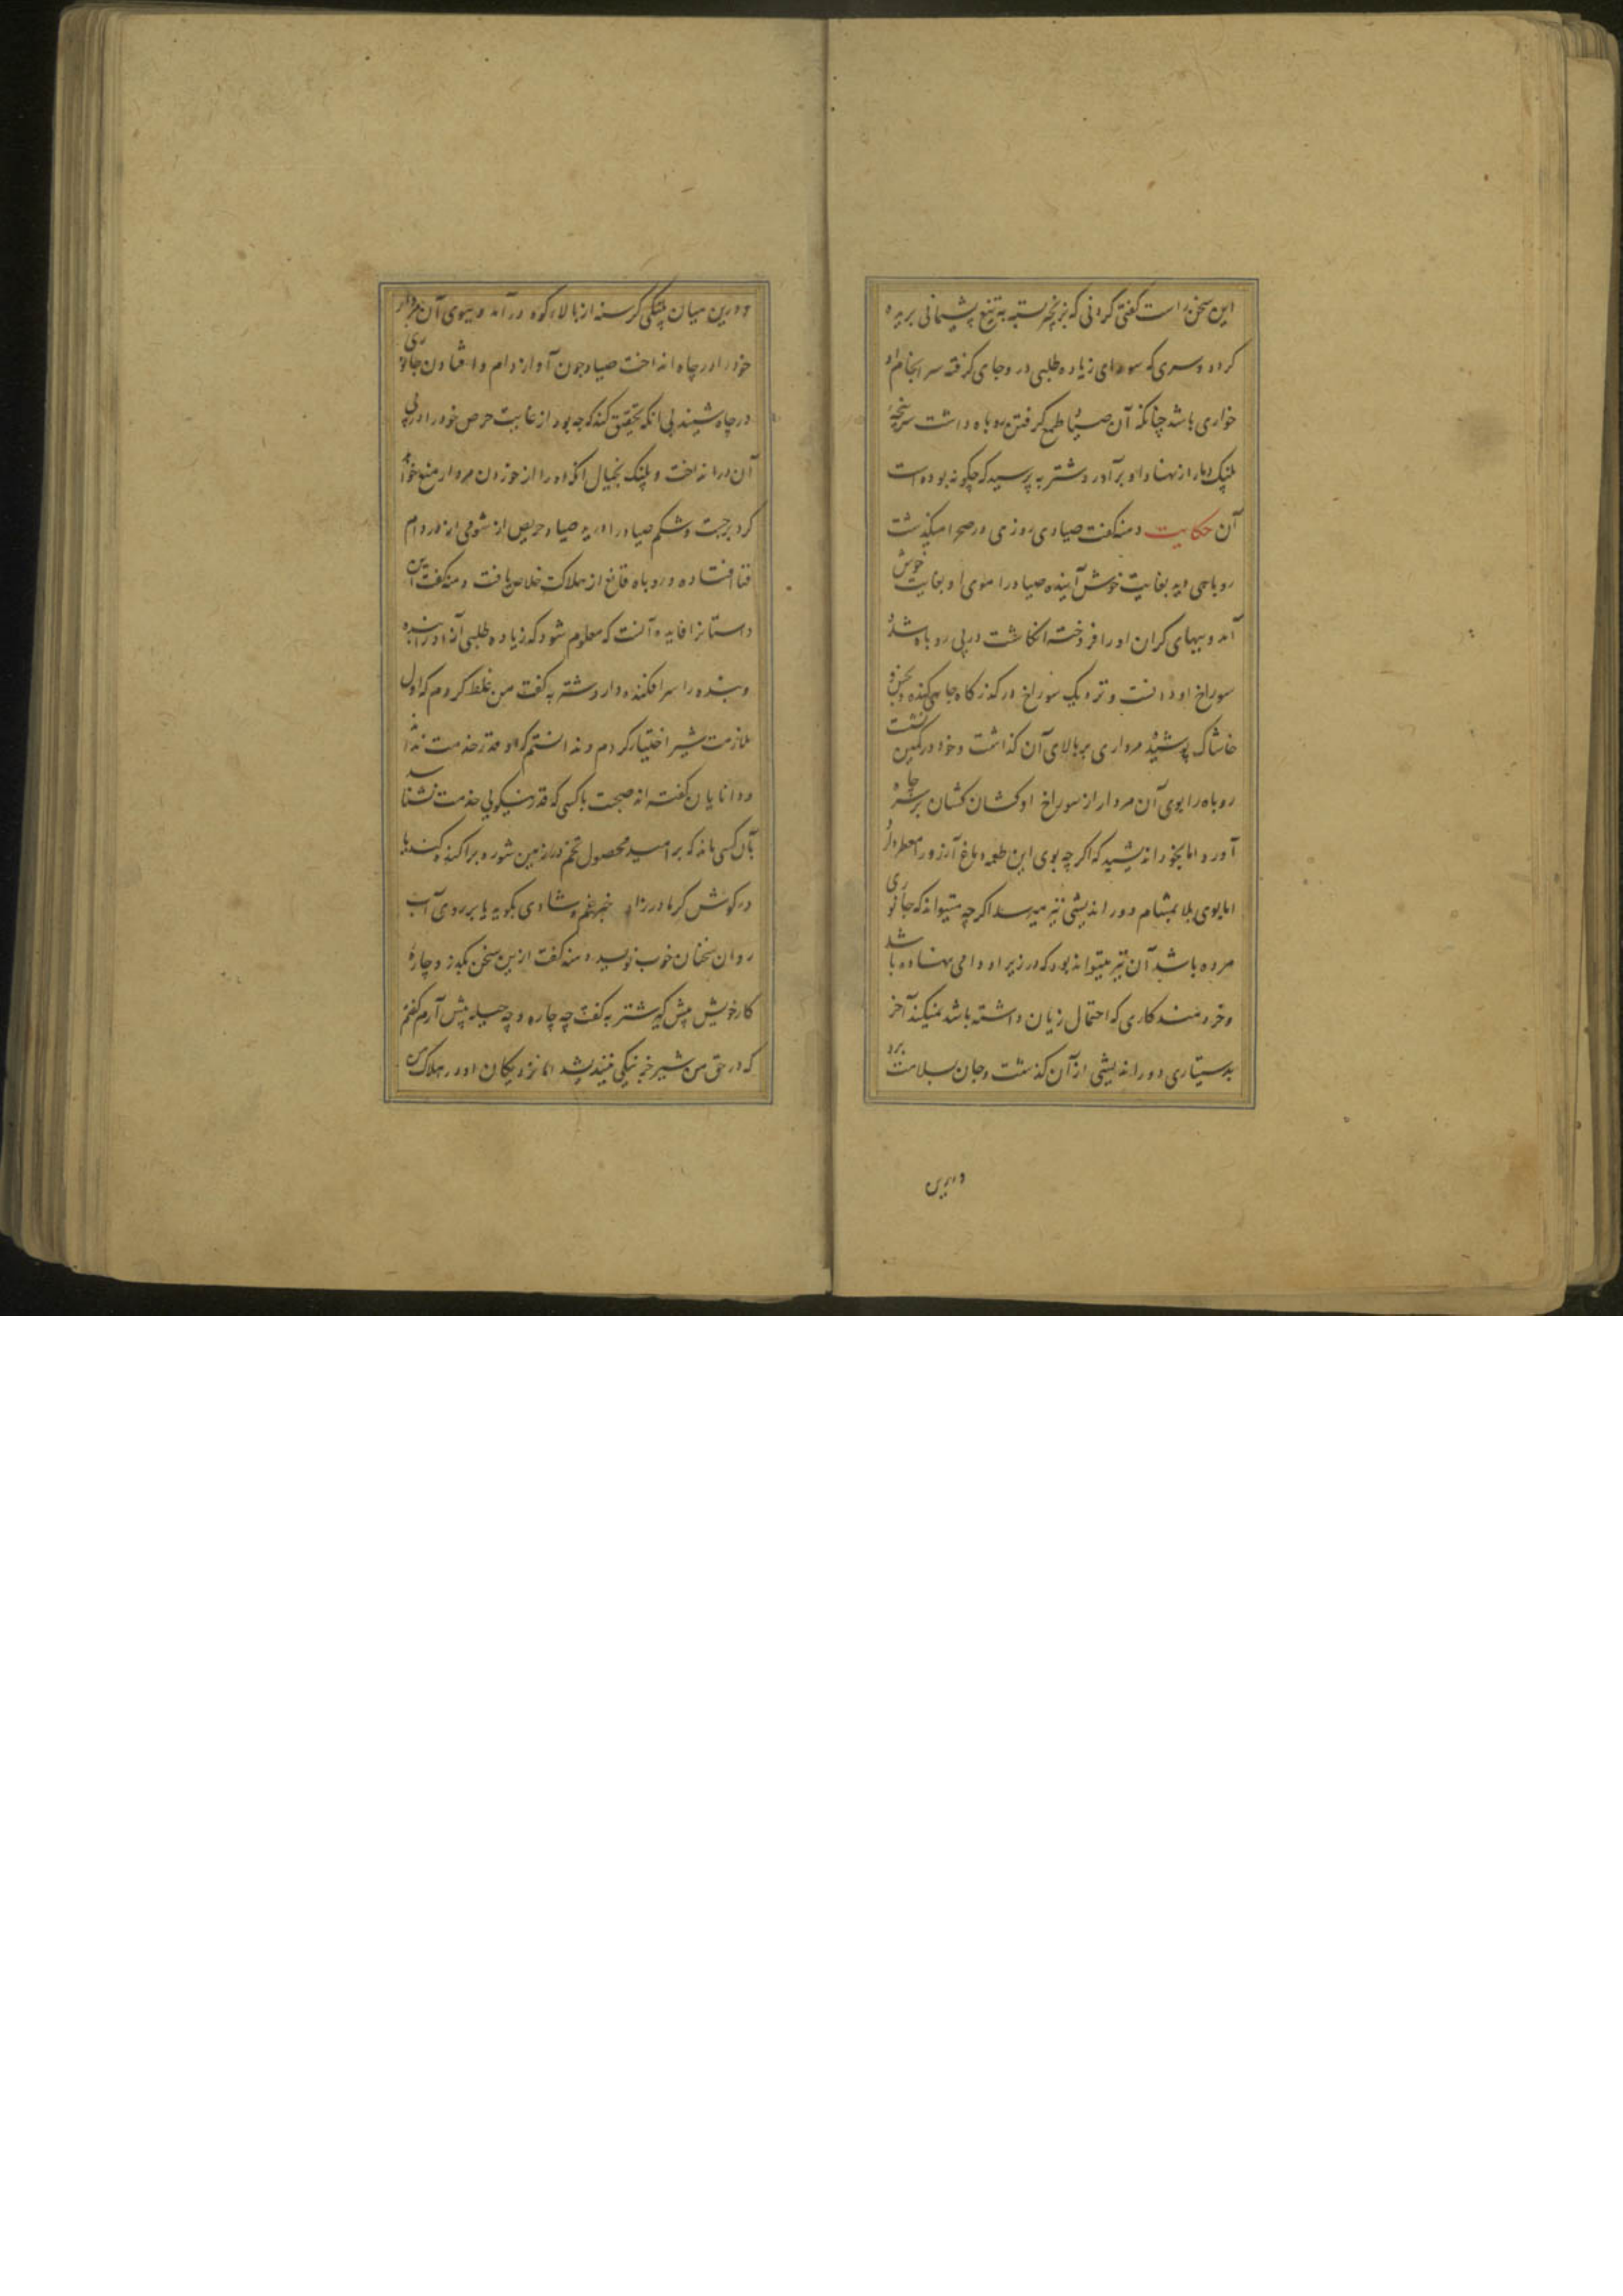 این سخن راست گفتی گردنی که بزنجیر بسته به تیغ پشیمانی بریده
گردد و سری که سودای زیاده طلبی درو جای گرفته سر انجام او
خواری باشد چنانکه آن صیاد طمع گرفتن روباه داشت سرپنجهٔ
پلنگ دمار از نهاد او برآورد شتربه پرسید که چگونه بوده است
آن حکایت دمنه گفت صیادی روزی در صحرا میگذشت
روباهی دید بغایت خوش آینده صیاد را موی او بغایت خوش
آمد و ببهای گران او را فروخته انگاشت در پی روباه شد و
سوراخ او دانست و نزدیک سوراخ در گذرگاه چاهی کنده و بخس و
خاشاک پوشید و مرداری بر بالای آن گذاشت و خود در کمین نشست
روباه را بوی آن مردار از سوراخ او کشان کشان بر سر چاه
آورد اما بخود اندیشید که اگر چه بوی این طعمه دماغ آرزو را معطر دارد
اما بوی بلا بمشام دور اندیشی نیز میرسد اگر چه میتواند که جانوری
مرده باشد آن نیز میتواند بود که در زیر او دامی نهاده باشد
و خردمند کاری که احتمال زیان داشته باشد نمیکند آخر
بدستیاری دور اندیشی از آن گذشت و جان بسلامت برد
درین
و درین میان پلنگی گرسنه از بالاء کوه در آمد و ببوی آن مردار
خود را در چاه انداخت صیاد چون آواز دام و افتادن جانوری
در چاه شنید بی آنکه تحقیق کند که چه بود از غایت حرص خود را در پی
آن در انداخت و پلنگ بخیال آنکه او را از خوردن مردار منع خواهد
کرد برجست و شکم صیاد را درید صیاد حریص از شومی آز در دام
فنا افتاده و روباه قانع از هلاکت خلاص یافت دمنه گفت این
داستانرا فایده آنست که معلوم شود که زیاده طلبی آزاد را بنده
و بنده را سرافکنده دارد شتربه گفت من غلط کردم که اول
ملازمت شیر اختیار کردم و ندانستم که او قدر خدمت نداند
و دانایان گفته اند صحبت با کسی که قدر نیکویی خدمت نشناسد
بآن کسی ماند که بر امید محصول تخم در زمین شوره پراکنده کند یا
در گوش کر مادرزاد خبر غم و شادی بگوید یا بر روی آب
روان سخنان خوب نویسد دمنه گفت ازین سخن بگذر و چارهٔ
کار خویش پیش گیر شتربه گفت چه چاره و چه حیله پیش آرم گفتم
که در حق من شیر خبر نیکی نیندیشد اما نزدیکان او در هلاک من